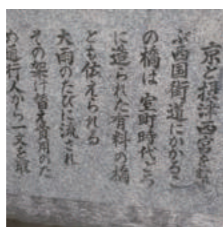 京と摂津西宮を結
ぶ西国街道にかかるこ
の橋は 室町時代ごろ
に造られた有料の橋
とも伝えられる
大雨のたびに流され
その架け替え費用のた
め通行人から一文を取